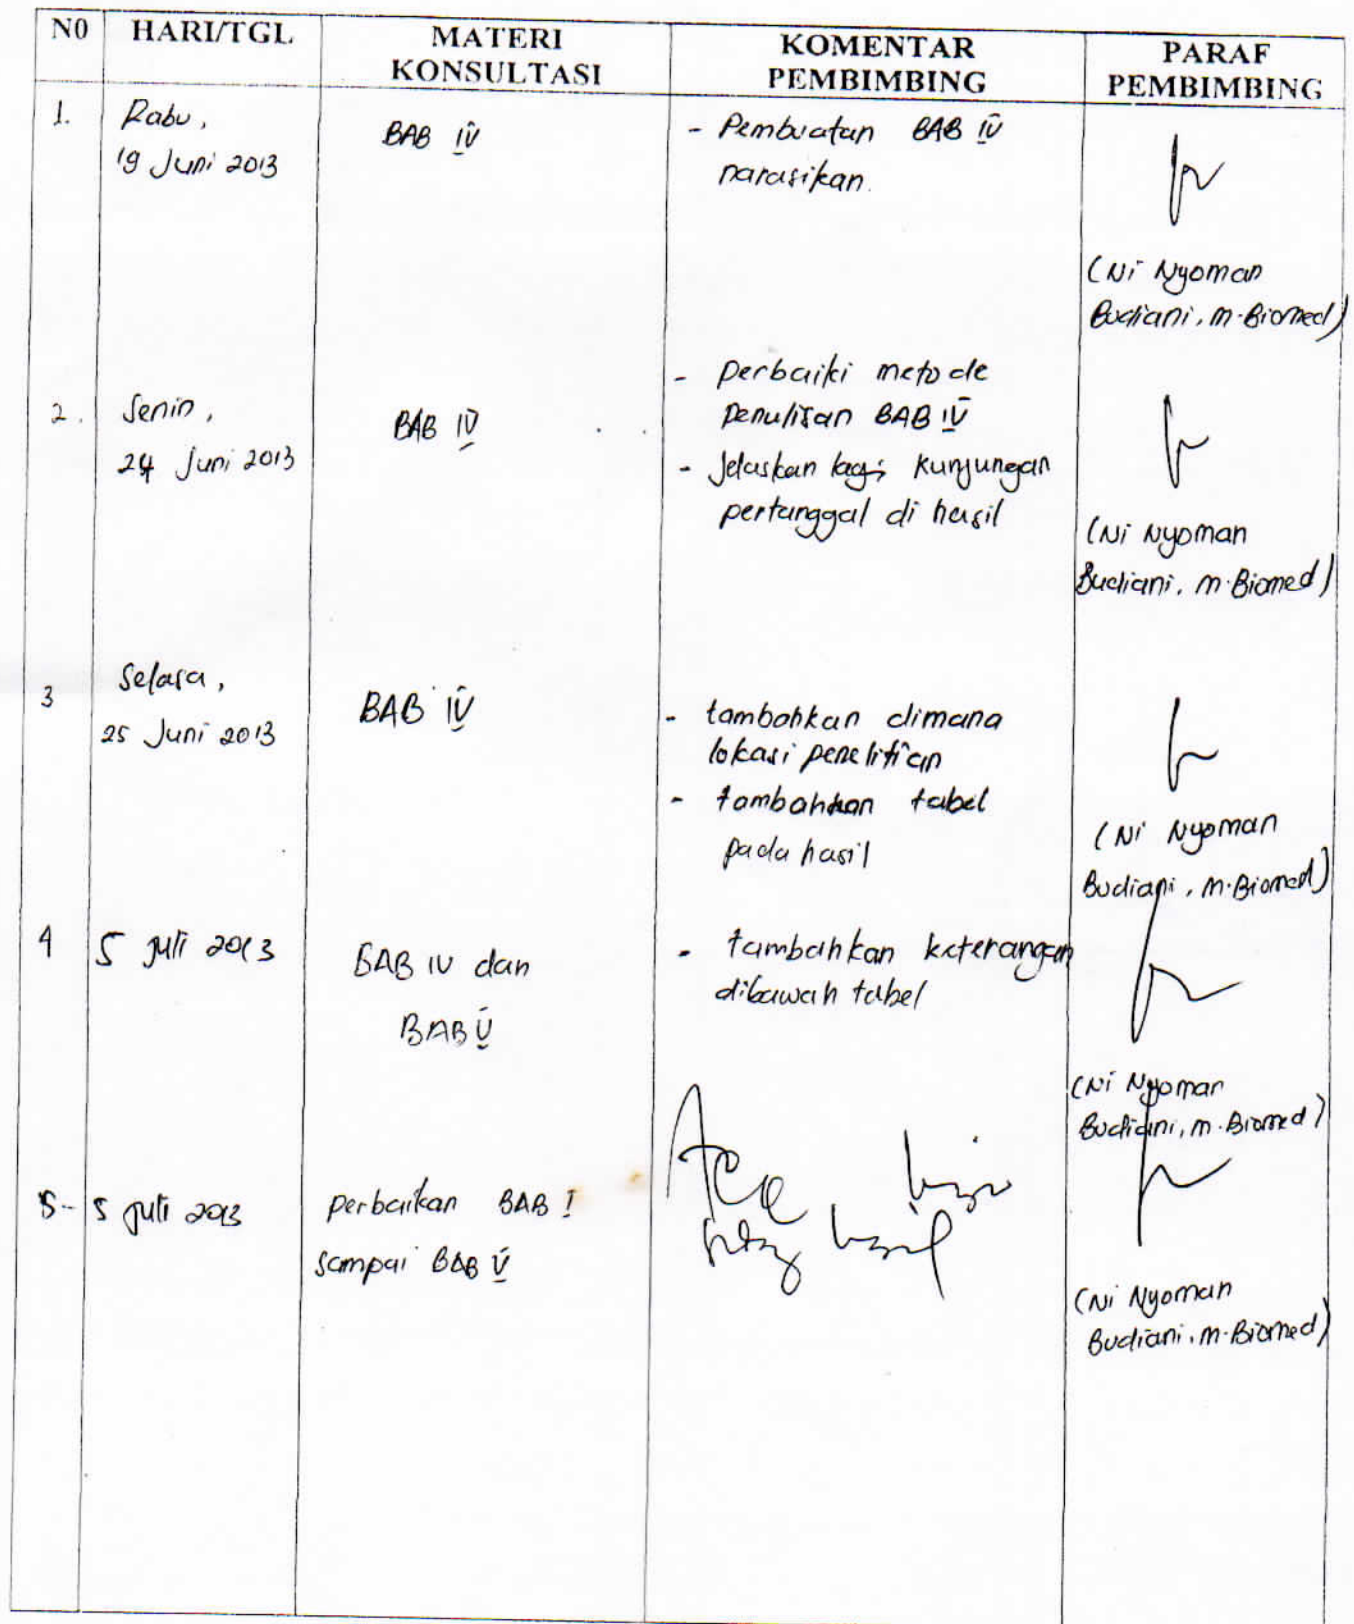 N0 HARI/TGL MATERI KONSULTASI KOMENTAR PEMBIMBING PARAF PEMBIMBING
1. Rabu, 19 Juni 2013
BAB IV
- Pembuatan BAB IV
narasikan.
(Ni Nyoman
Budiani, M.Biomed)
2. Senin,
24 Juni 2013
BAB IV
- perbaiki metode
penulisan BAB IV
- Jelaskan lagi kunjungan
pertanggal di hasil
(Ni Nyoman
Budiani, M.Biomed)
3 Selasa,
25 Juni 2013
BAB IV
- tambahkan dimana
lokasi penelitian
- tambahkan tabel
pada hasil
(Ni Nyoman
Budiani, M.Biomed)
4 5 Juli 2013
BAB IV dan
BAB V
- tambahkan keterangan
dibawah tabel
(Ni Nyoman
Budiani, M.Biomed)
5- 5 Juli 2013
perbaikan BAB I
sampai BAB V
Acc
(Ni Nyoman
Budiani, M.Biomed)